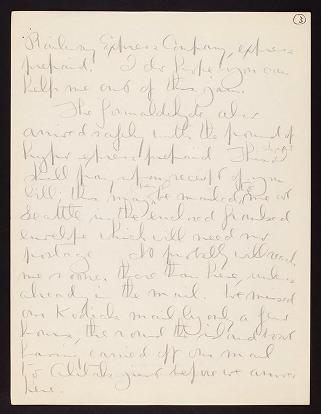 3
Railway Express Company, express
prepaid. I do hope you can
help me out of this jam.
The formaldehyde also
arrived safely with the pound of
hypo express prepaid. This
shall pay upon receipt of your
bill. This may be mailed me at
Seattle in the enclosed franked
envelope which will need no
postage. It probably will reach
me sooner there than here, unless
already in the mail. We missed
our Kodiak mail by only a few
hours, the round the island boat
having carried off our mail
to Alitak just before we arrived
here.